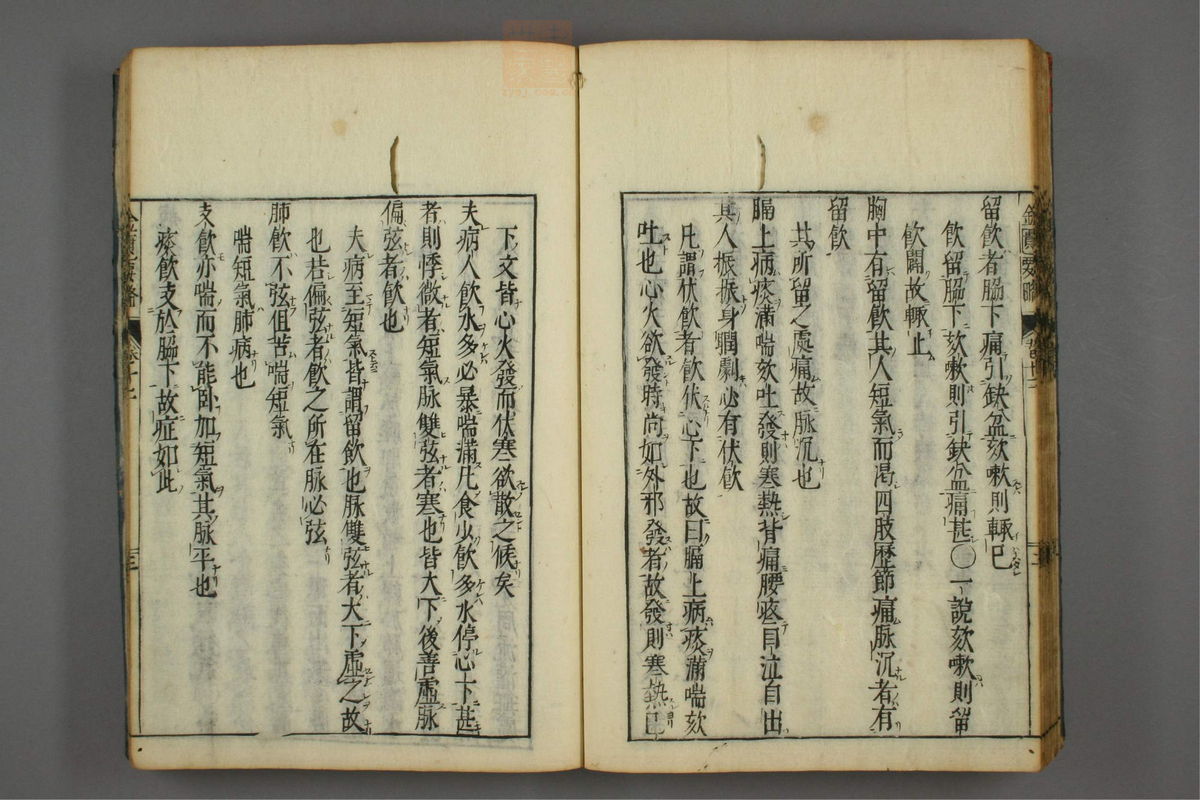 留飲者脇下痛引缺盆欬嗽則輙已
飲留脇下欬嗽則引缺盆痛甚〇一說欬嗽則留
飲開故輙止
胸中有留飲其人短氣而渴四肢歷節痛脉沉者有
留飲
其所留之處痛故脉沉也
膈上病痰滿喘欬吐發則寒熱背痛腰疼目泣自出
其人振振身瞤劇必有伏飲
凡謂伏飲者飲伏心下也故曰膈上病痰滿喘欬
吐也心火欲發時尚如外邪發者故發則寒熱已
下文皆心火發而伏寒欲散之候矣
夫病人飲水多必暴喘滿凡食少飲多水停心下甚
者則悸微者短氣脉雙弦者寒也皆大下後善虛脉
偏弦者飲也
夫病至短氣皆謂留飲也脉雙弦者大下虛之故
也若偏弦者飲之所在脉必弦
肺飲不弦但苦喘短氣
喘短氣肺病也
支飲亦喘而不能卧加短氣其脉平也
痰飲支於脇下故症如此